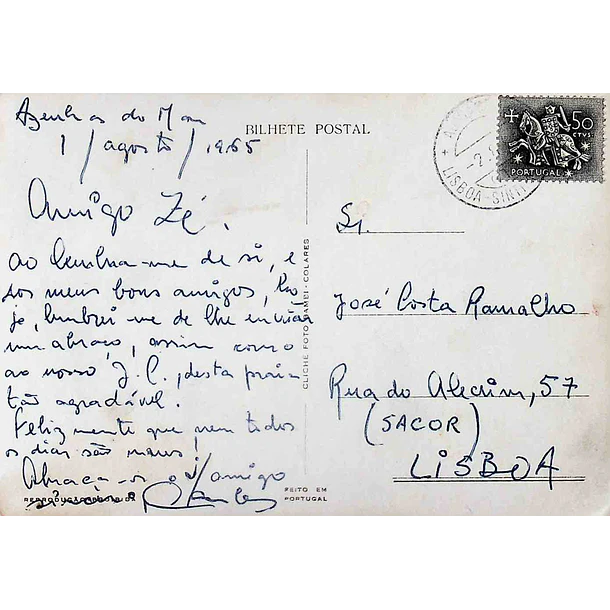 Azenhas do Mar
1/agosto/1965
BILHETE POSTAL
50
CTVS.
PORTUGAL
LISBOA-SINT
Amigo Zé.
ao lembrar-me de si, e
dos meus bons amigos,
lembrei-me de lhe enviar
um abraço, assim como
ao nosso J.C., desta praia
tão agradável.
Felizmente que nem todos
os dias são maus!
Abraça-vos o amigo
CLICHE FOTO - COLARES
FEITO EM
PORTUGAL
Sr.
José Costa Ramalho
Rua do Alecrim, 57
(SACOR)
LISBOA